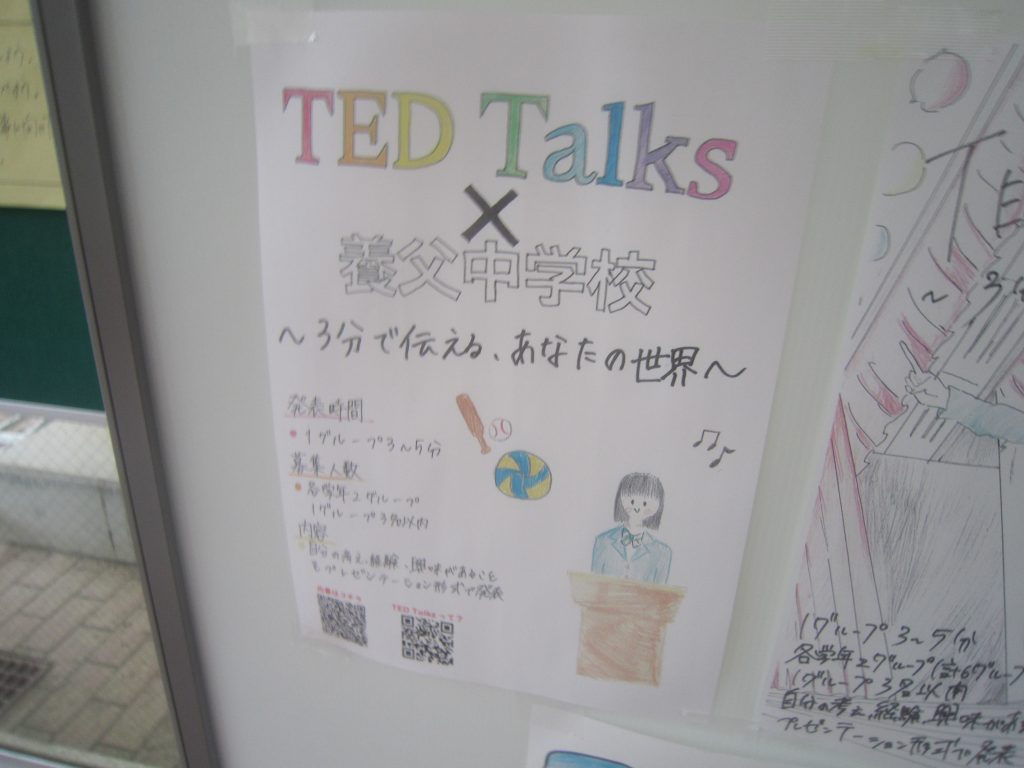 TED Talks
×
養父中学校
～3分で伝える、あなたの世界～
発表時間
・1グループ3～5分
募集人数
・各学年2グループ
1グループ3名以内
内容
・自分の考え、経験、興味があること
をプレゼンテーション形式で発表
応募はコチラ
TED Talksって？
1グループ3～5分
各学年2グループ(計6グループ
1グループ3名以内
自分の考え、経験、興味があ
プレゼンテーション形式で発表